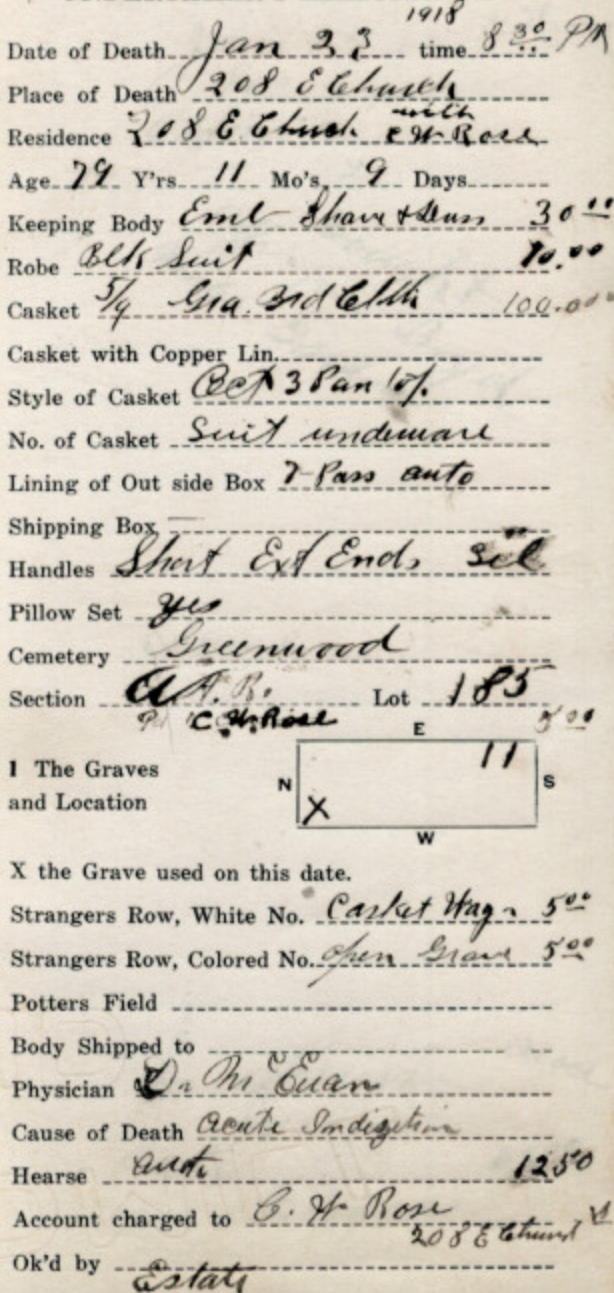 1918
Date of Death Jan 23 time 8 30 PM
Place of Death 208 E Church
with
Residence 208 E Church C W Rose
Age 79 Y'rs 11 Mo's 9 Days
Keeping Body Emb Shave & 30 00
Robe Blk Suit 70.00
Casket 5/9 Gra. 3rd Clth 100.00
Casket with Copper Lin.
Style of Casket Oct 3 Pan
No. of Casket Suit underware
Lining of Out side Box 7 Pass auto
Shipping Box
Handles Short Ext Ends Sil
Pillow Set yes
Cemetery Greenwood
Section A. R. Lot 185
C. W. Rose 5 00
E
1 The Graves and Location
N 11 S
X
W
X the Grave used on this date.
Strangers Row, White No. Casket Wagn 5 00
Strangers Row, Colored No. open Grave 5 00
Potters Field
Body Shipped to
Physician Dr McEuan
Cause of Death Acute Indigetion
Hearse auto 12 50
Account charged to C. W Rose
208 E Church
Ok'd by
Estate